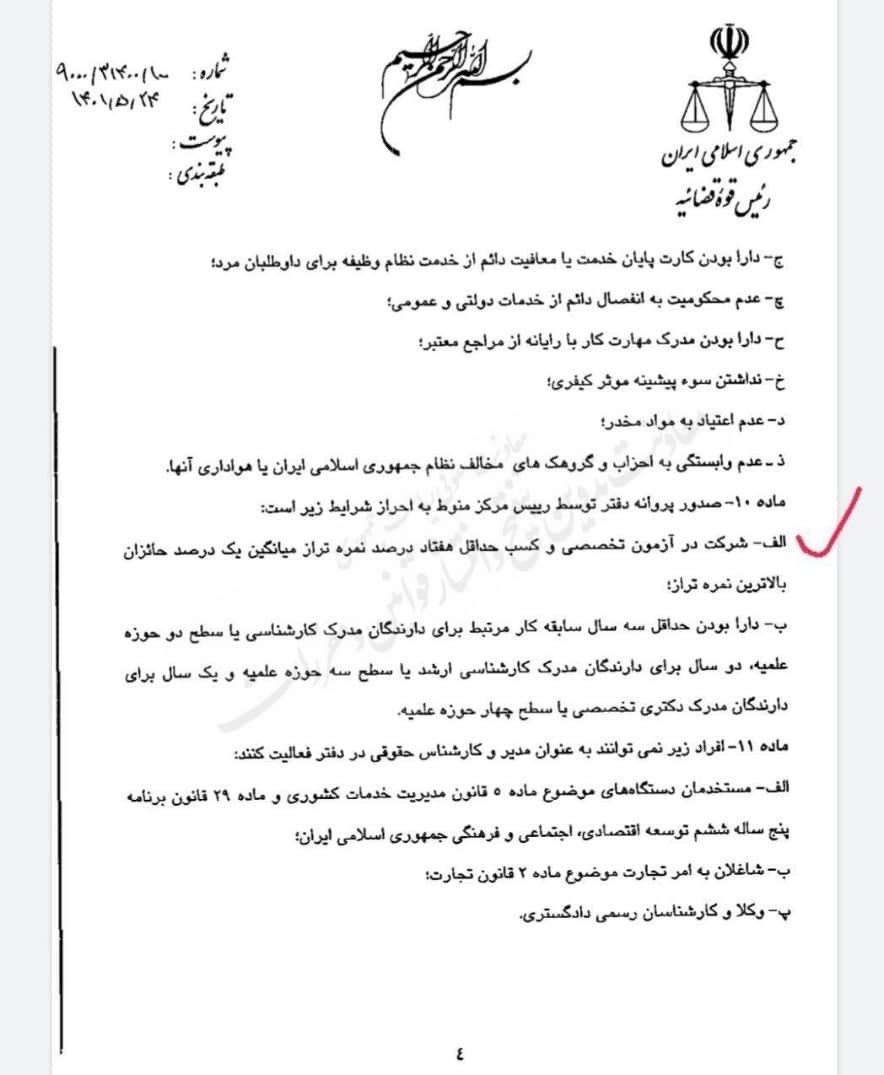 بسم الله الرحمن الرحیم
جمهوری اسلامی ایران
رئیس قوهٔ قضائیه
شماره : ۹۰۰۰/۳۱۴۰۰/۱۰۰
تاریخ : ۱۴۰۱/۵/۲۴
پیوست :
طبقه‌بندی :
ج- دارا بودن کارت پایان خدمت یا معافیت دائم از خدمت نظام وظیفه برای داوطلبان مرد؛
چ- عدم محکومیت به انفصال دائم از خدمات دولتی و عمومی؛
ح- دارا بودن مدرک مهارت کار با رایانه از مراجع معتبر؛
خ- نداشتن سوء پیشینه موثر کیفری؛
د- عدم اعتیاد به مواد مخدر؛
ذ- عدم وابستگی به احزاب و گروهک های مخالف نظام جمهوری اسلامی ایران یا هواداری آنها.
ماده ۱۰- صدور پروانه دفتر توسط رییس مرکز منوط به احراز شرایط زیر است:
الف- شرکت در آزمون تخصصی و کسب حداقل هفتاد درصد نمره تراز میانگین یک درصد حائزان
بالاترین نمره تراز؛
ب- دارا بودن حداقل سه سال سابقه کار مرتبط برای دارندگان مدرک کارشناسی یا سطح دو حوزه
علمیه، دو سال برای دارندگان مدرک کارشناسی ارشد یا سطح سه حوزه علمیه و یک سال برای
دارندگان مدرک دکتری تخصصی یا سطح چهار حوزه علمیه.
ماده ۱۱- افراد زیر نمی توانند به عنوان مدیر و کارشناس حقوقی در دفتر فعالیت کنند:
الف- مستخدمان دستگاه‌های موضوع ماده ۵ قانون مدیریت خدمات کشوری و ماده ۲۹ قانون برنامه
پنج ساله ششم توسعه اقتصادی، اجتماعی و فرهنگی جمهوری اسلامی ایران؛
ب- شاغلان به امر تجارت موضوع ماده ۲ قانون تجارت؛
پ- وکلا و کارشناسان رسمی دادگستری.
٤